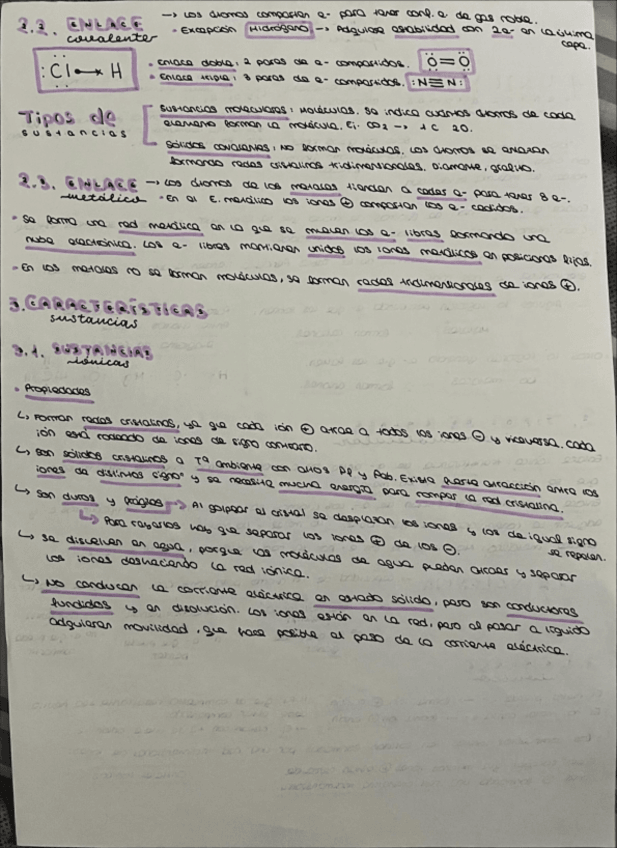 2.2. ENLACE covalente → Los átomos comparten e- para tener conf. e. de gas noble.
• Excepción Hidrógeno → Adquiere estabilidad con 2e- en la última capa.
:Cl → H
• Enlace doble: 2 pares de e- compartidos. O=O
• Enlace triple: 3 pares de e- compartidos. :N≡N:
Tipos de sustancias
Sustancias moleculares: Moléculas. Se indica cuántos átomos de cada
elemento forman la molécula. Ej. CO2 → 1C 2O.
Sólidos covalentes: No forman moléculas. Los átomos se enlazan
formando redes cristalinas tridimensionales. Diamante, grafito.
2.3. ENLACE metálico → Los átomos de los metales tienden a ceder e- para tener 8 e-.
• En el E. metálico los iones ⊕ comparten los e- cedidos.
• Se forma una red metálica en la que se mueven los e- libres formando una
nube electrónica. Los e- libres mantienen unidos los iones metálicos en posiciones fijas.
• En los metales no se forman moléculas, se forman redes tridimensionales de iones ⊕.
3. CARACTERÍSTICAS
sustancias
3.1. SUSTANCIAS
iónicas
• Propiedades
↳ Forman redes cristalinas, ya que cada ión ⊕ atrae a todos los iones ⊖ y viceversa. Cada
ión está rodeado de iones de signo contrario.
↳ Son sólidos cristalinos a Tª ambiente con altos Pf y Peb. Existe fuerte atracción entre los
iones de distintos signo y se necesita mucha energía para romper la red cristalina.
↳ Son duros y frágiles → Al golpear el cristal se desplazan los iones y los de igual signo
se repelen.
↳ Para rayarlos hay que separar los iones ⊕ de los ⊖.
↳ Se disuelven en agua, porque las moléculas de agua pueden atraer y separar
los iones deshaciendo la red iónica.
↳ No conducen la corriente eléctrica en estado sólido, pero son conductores
fundidos y en disolución. Los iones están en la red, pero al pasar a líquido
adquieren movilidad, que hace posible el paso de la corriente eléctrica.